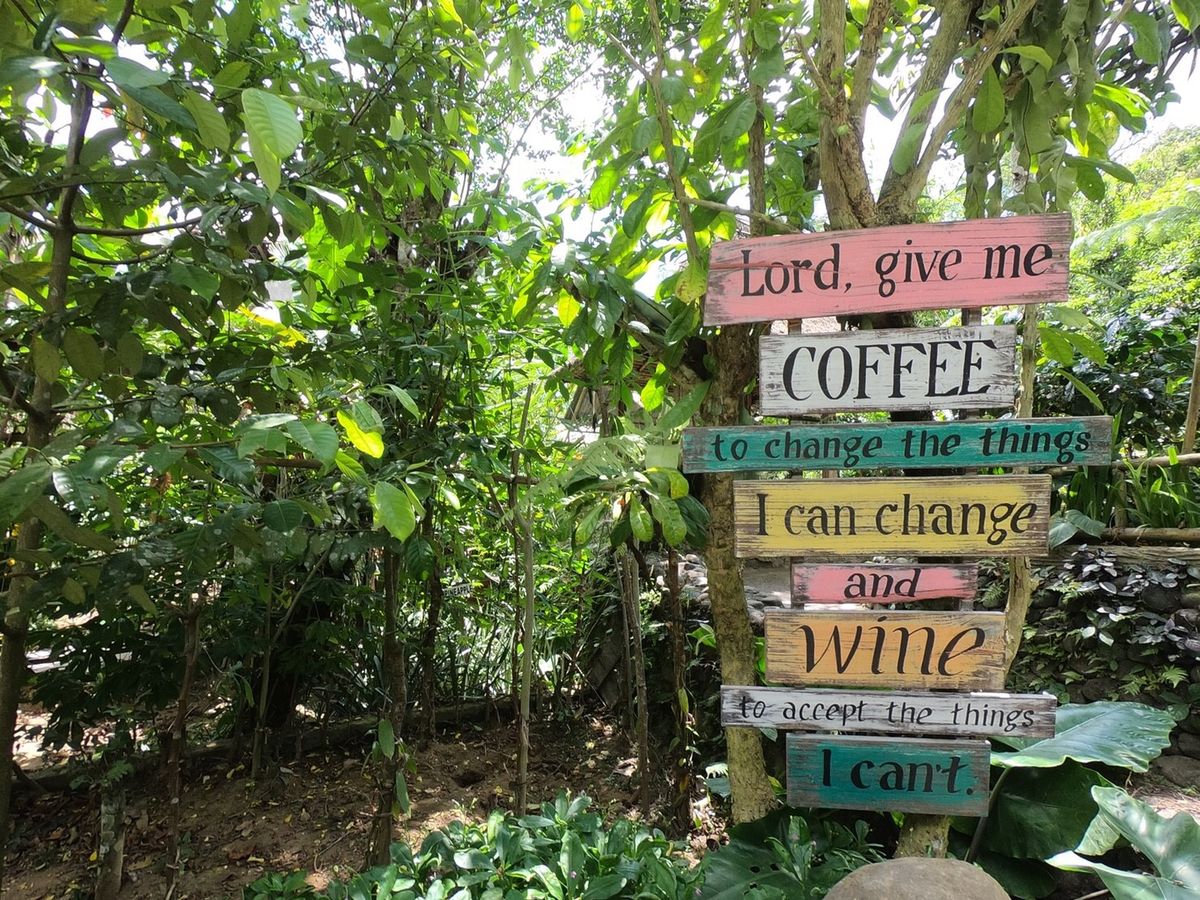 Lord, give me
COFFEE
to change the things
I can change
and
WINE
to accept the things
I can't.